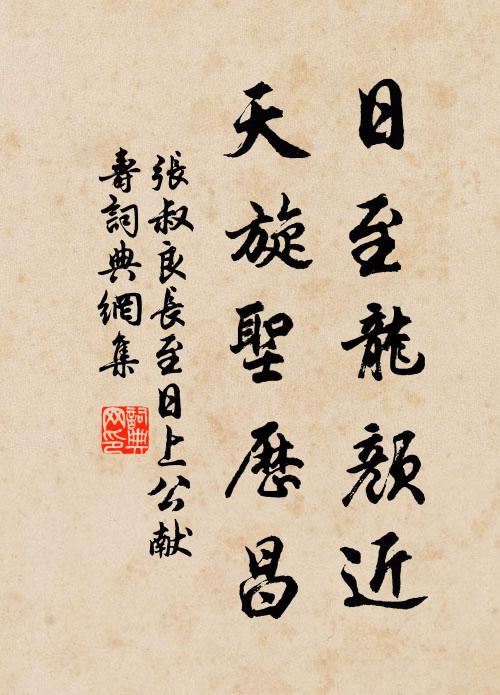 日至龍顏近
天旋聖歷昌
張叔良長至日上公献
壽詞典網集
詞典
网印